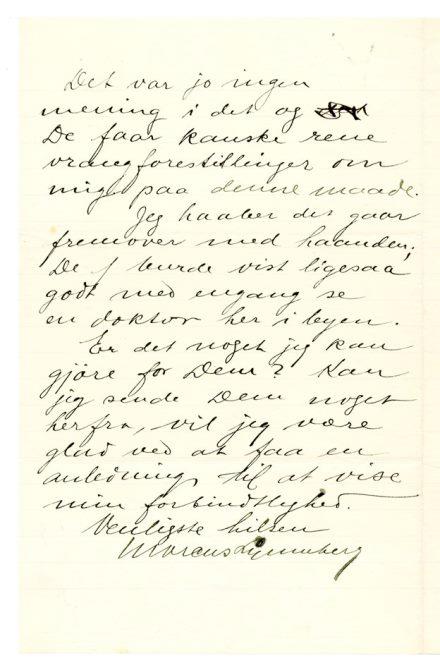 Det var jo ingen
mening i det og
De faar kanske rene
vrangforestillinger om
mig paa denne maade.
Jeg haaber det gaar
fremover med haanden;
De burde vist ligesaa
godt med engang se
en doktor her i byen.
Er det noget jeg kan
gjöre for Dem? Kan
jeg sende Dem noget
herfra, vil jeg være
glad ved at faa en
anledning til at vise
min forbindtlighed.
Venligste hilsen
Marcus